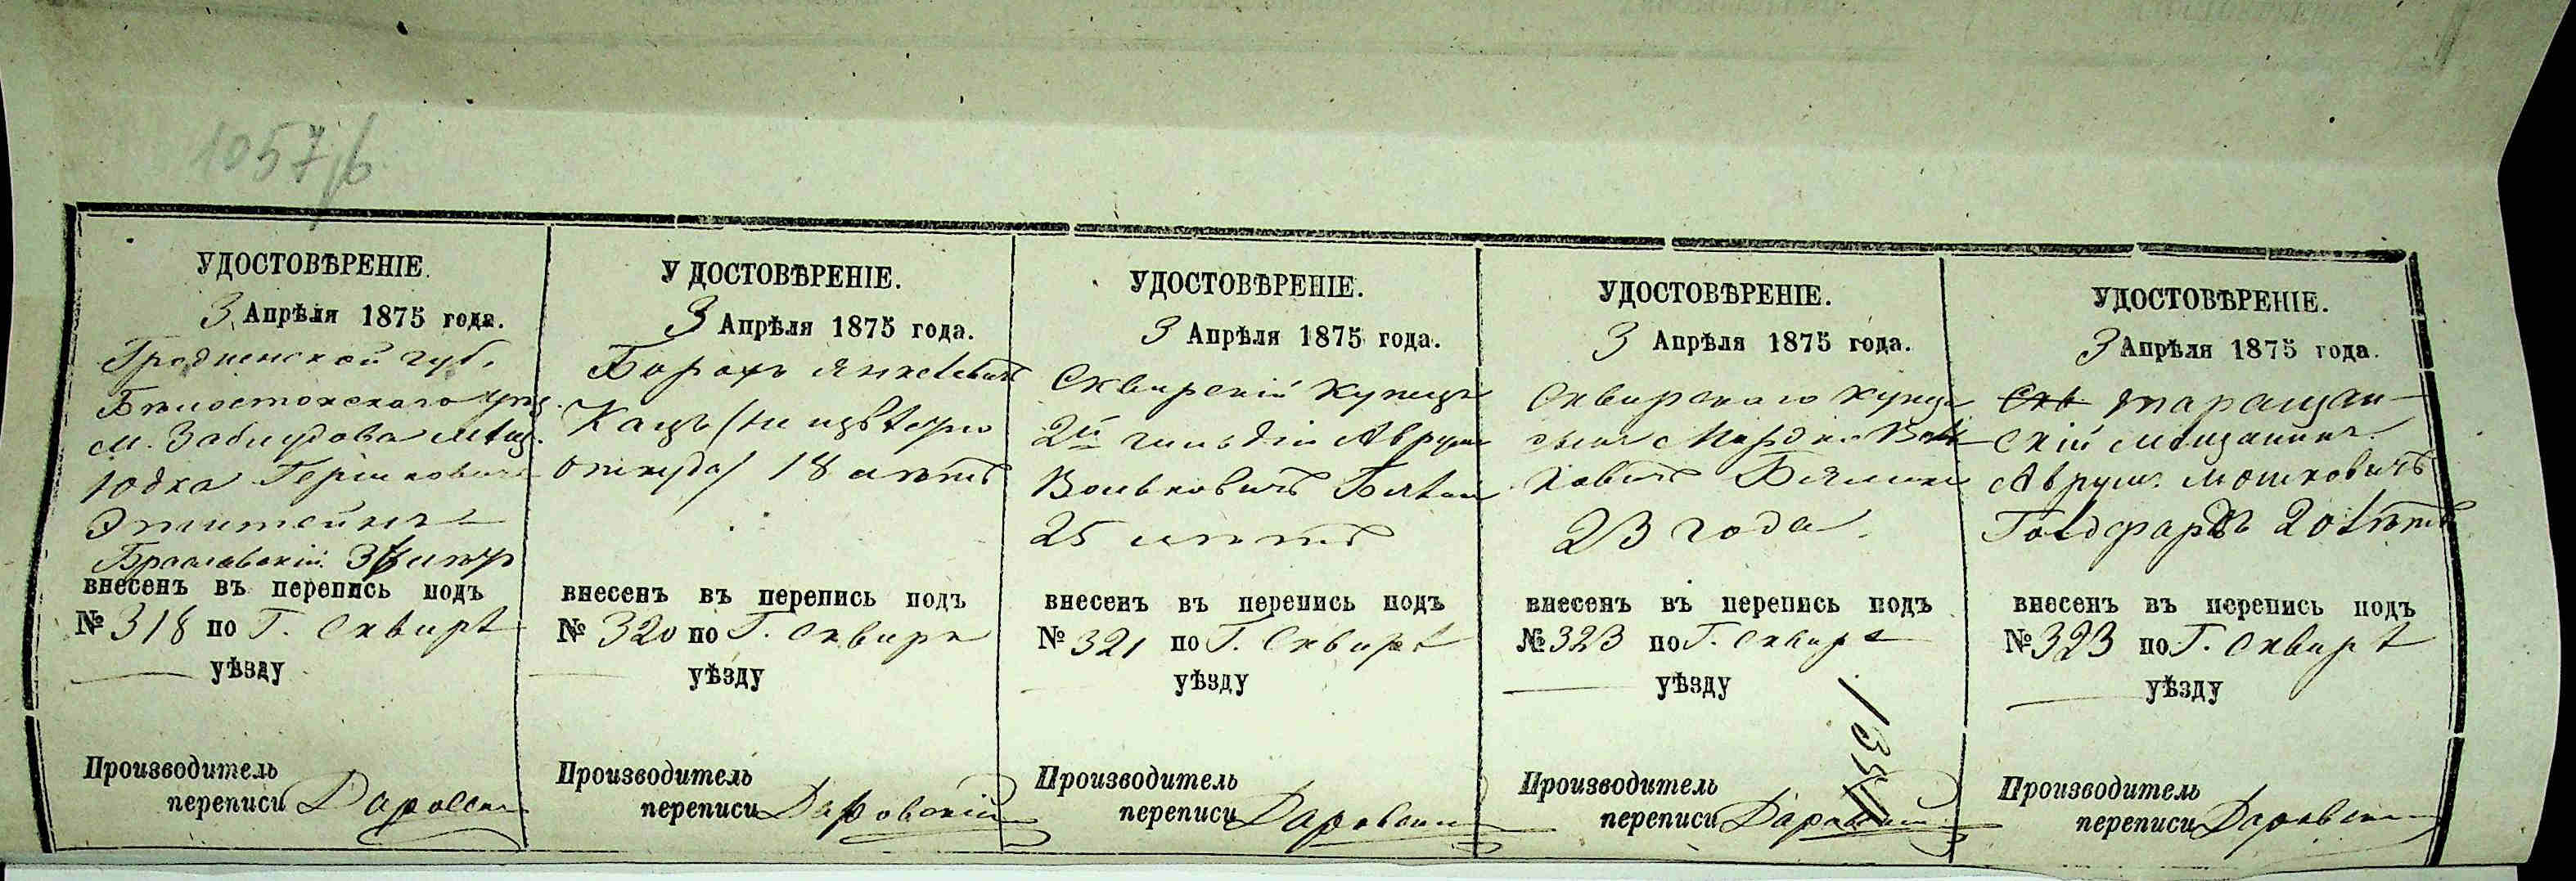 1057/б
УДОСТОВѢРЕНІЕ.
3 Апрѣля 1875 года.
Гродненской губ.
Бѣлостокского уѣз.
м. Заблудова мѣщ.
Юдка Гершкович
Эпштейнъ
Браславскій 36 лѣтъ
внесенъ въ перепись подъ
№ 318 по Г. Сквирѣ
уѣзду
Производитель
переписи Даровскій
УДОСТОВѢРЕНІЕ.
3 Апрѣля 1875 года.
Борохъ Янкелевичъ
Кацъ (неизвѣстно
откуда) 18 лѣтъ
внесенъ въ перепись подъ
№ 320 по Г. Сквирѣ
уѣзду
Производитель
переписи Даровскій
УДОСТОВѢРЕНІЕ.
3 Апрѣля 1875 года.
Сквирскій купецъ
2й гильдіи Аврумъ
Вольковичъ
25 лѣтъ
внесенъ въ перепись подъ
№ 321 по Г. Сквирѣ
уѣзду
Производитель
переписи Даровскій
УДОСТОВѢРЕНІЕ.
3 Апрѣля 1875 года.
Сквирского купца
сынъ Мордко Воль
ковичъ
23 года.
внесенъ въ перепись подъ
№ 323 по Г. Сквирѣ
уѣзду
Производитель
переписи Даровскій
УДОСТОВѢРЕНІЕ.
3 Апрѣля 1875 года.
Скв Таращан
скій мѣщанинъ
Аврумъ Мошковичъ
Голдфарбъ 20 лѣтъ
внесенъ въ перепись подъ
№ 323 по Г. Сквирѣ
уѣзду
Производитель
переписи Даровскій